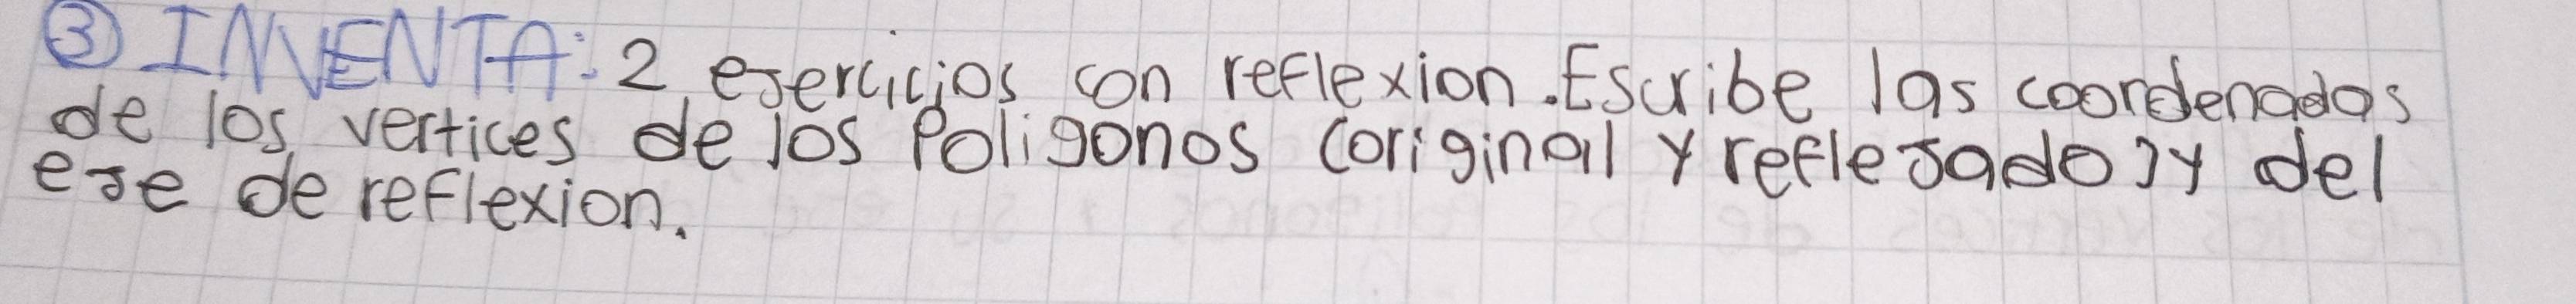 ③ INVENTA: 2 ejercicios con reflexion. Escribe las coordenadas
de los vertices de los Poligonos (original y reflejado) y del
eje de reflexion.